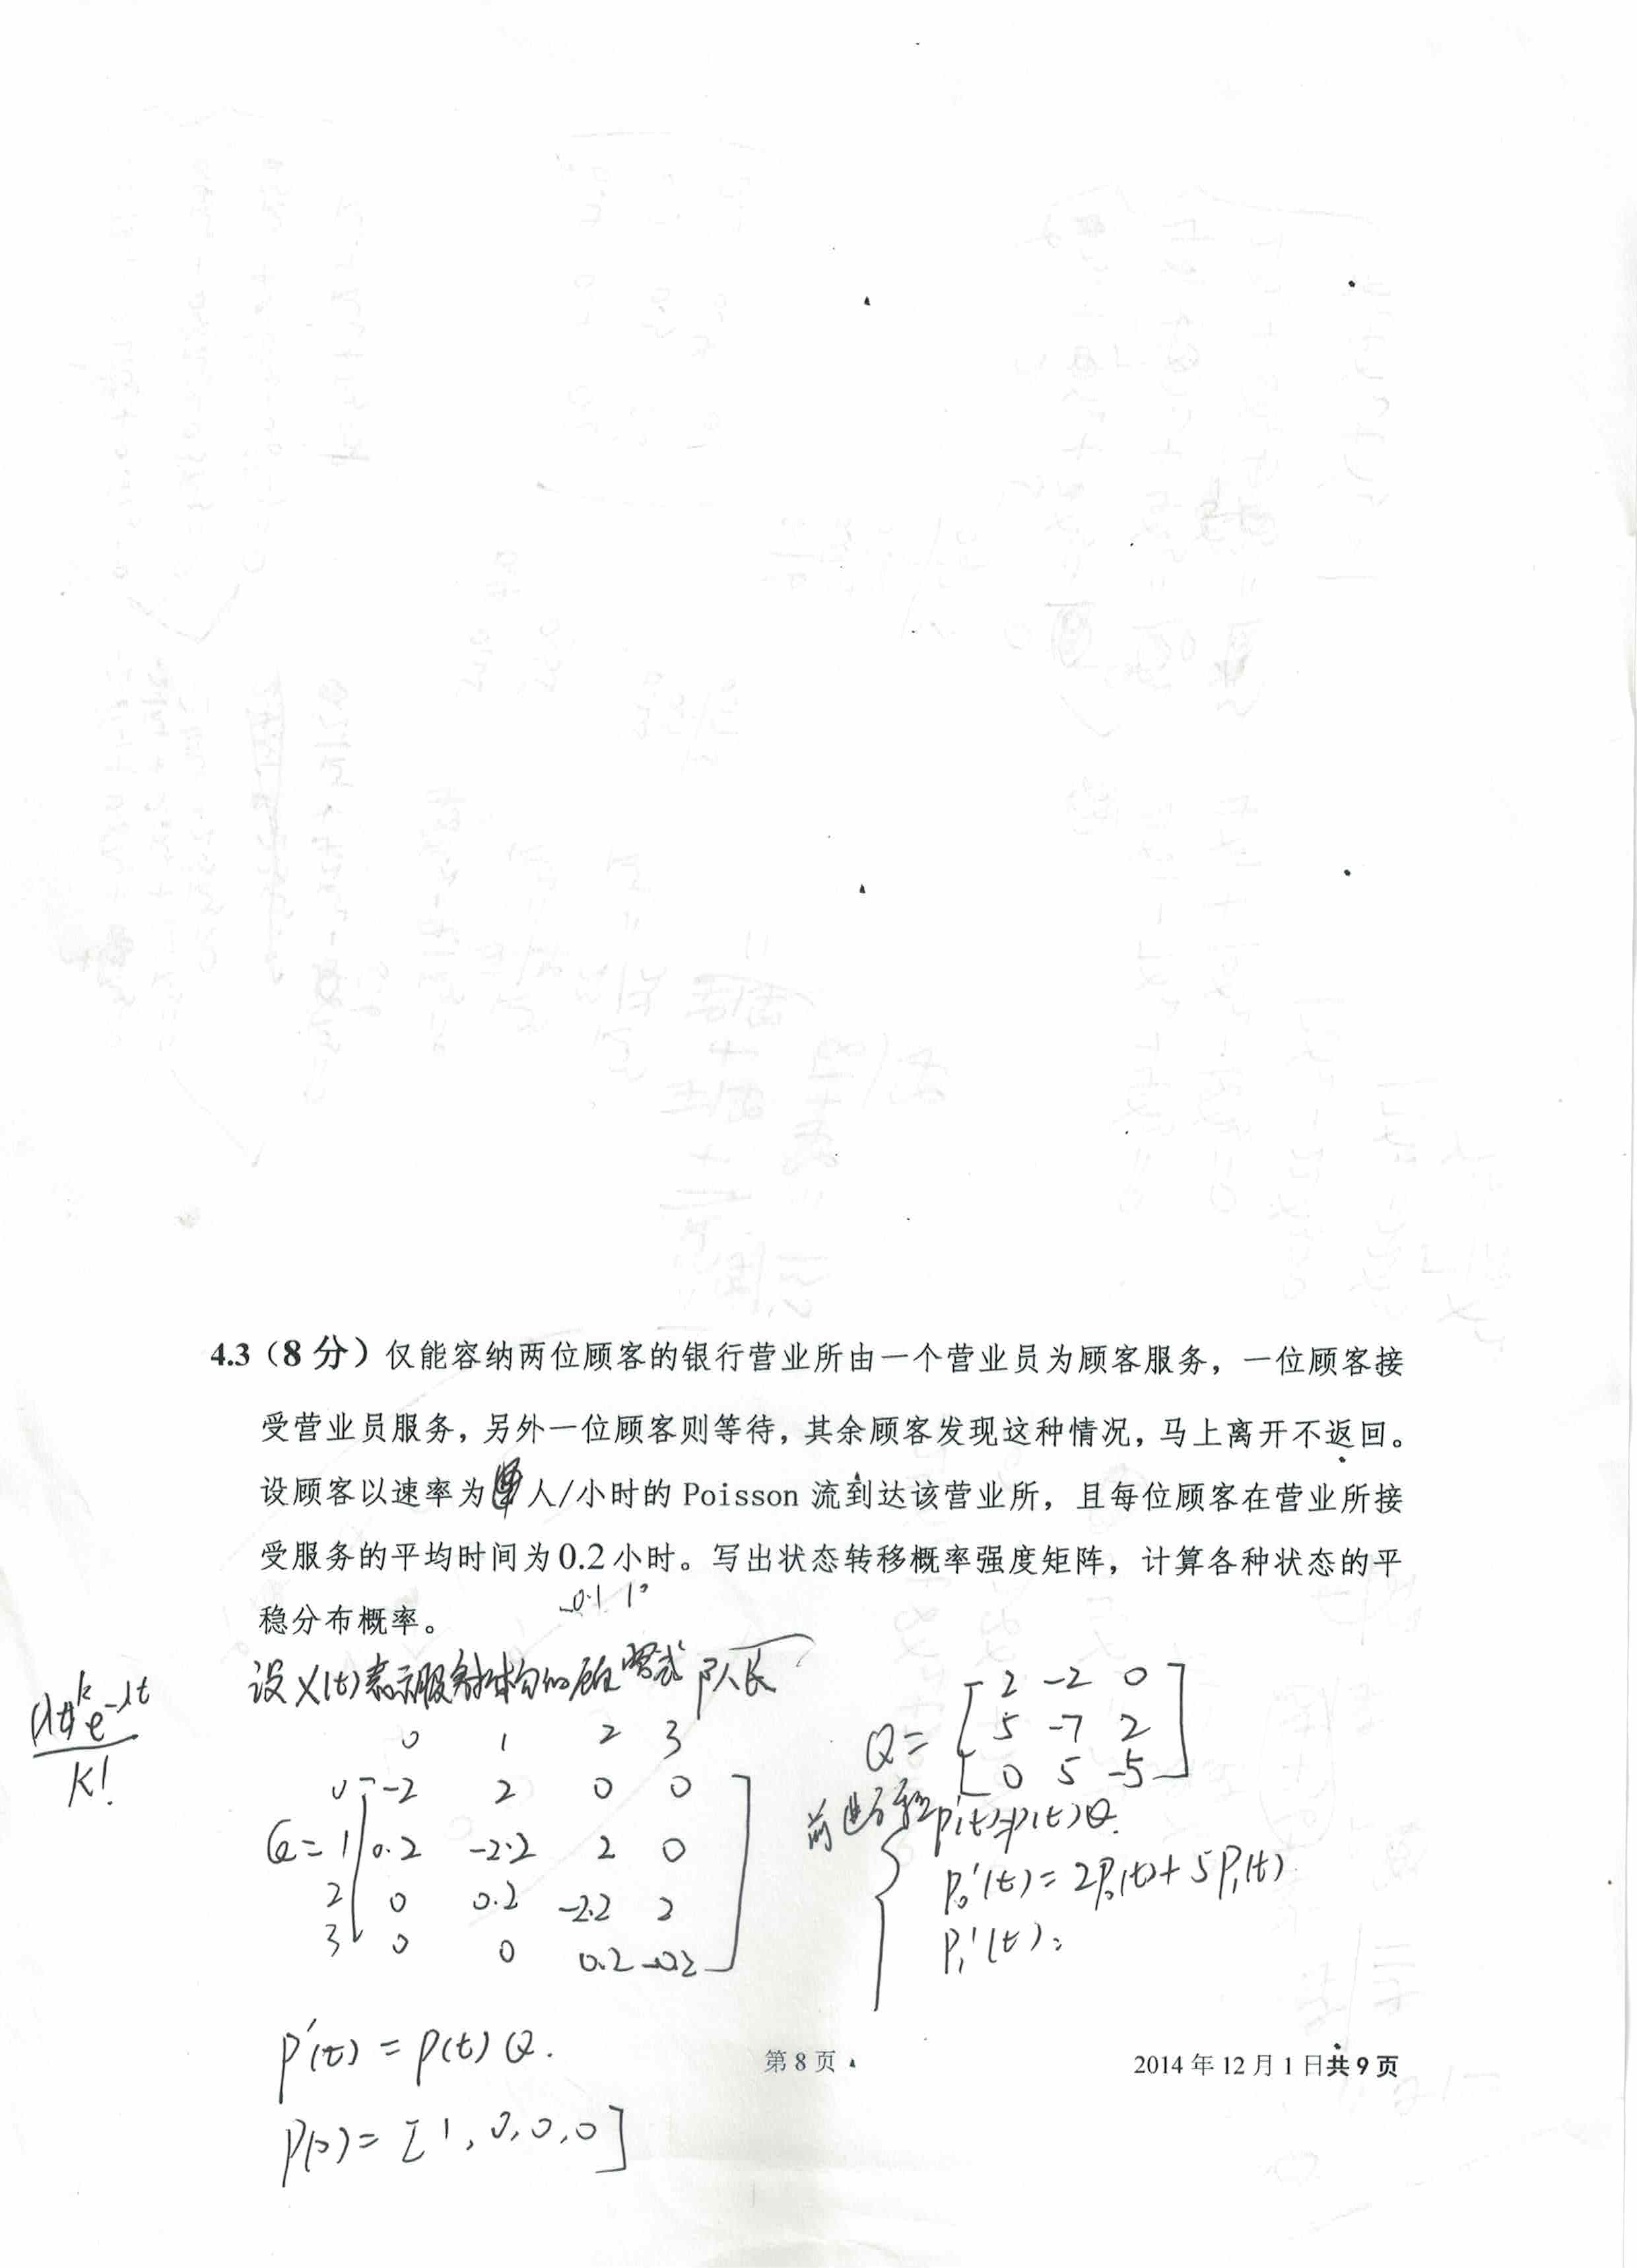 4.3（8 分）仅能容纳两位顾客的银行营业所由一个营业员为顾客服务，一位顾客接
受营业员服务，另外一位顾客则等待，其余顾客发现这种情况，马上离开不返回。
设顾客以速率为 人/小时的 Poisson 流到达该营业所，且每位顾客在营业所接
受服务的平均时间为0.2小时。写出状态转移概率强度矩阵，计算各种状态的平
稳分布概率。
设X(t)表示 队长
k!
0 1 2 3
0 -2 2 0 0
Q= 1 0.2 -2.2 2 0
2 0 0.2 -2.2 2
3 0 0 0.2 -0.2
P'(t) = P(t) Q.
P(0) = [1, 0, 0, 0]
2 -2 0
Q= 5 -7 2
0 5 -5
前进方程P'(t)=P(t)Q.
P₀'(t) = 2P₀(t) + 5P₁(t)
P₁'(t) =
第 8 页
2014 年 12 月 1 日共 9 页